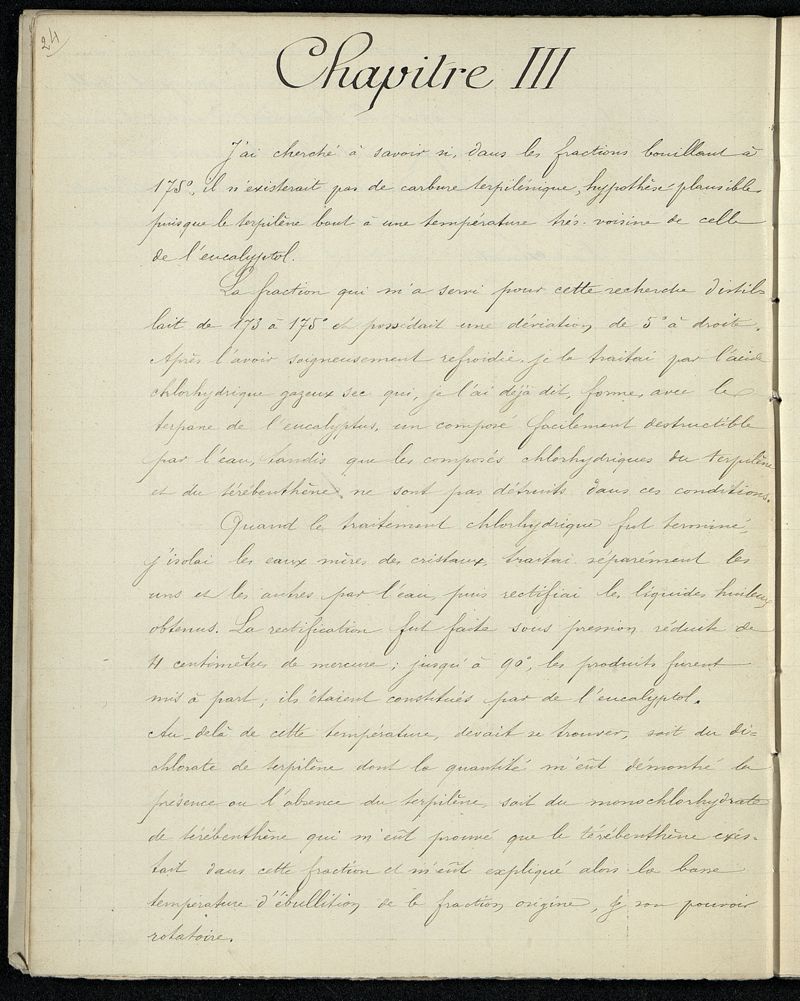 24
Chapitre III
J'ai cherché à savoir si, dans les fractions bouillant à
175°, il n'existerait pas de carbure terpilénique, hypothèse plausible
puisque le terpilène bout à une température très voisine de celle
de l'eucalyptol.
La fraction qui m'a servi pour cette recherche distil-
lait de 173 à 175° et possédait une déviation de 5° à droite.
Après l'avoir soigneusement refroidie, je la traitai par l'acide
chlorhydrique gazeux sec qui, je l'ai déjà dit, forme, avec le
terpane de l'eucalyptus, un composé facilement destructible
par l'eau, tandis que les composés chlorhydriques du terpilène
et du térébenthène ne sont pas détruits dans ces conditions.
Quand le traitement chlorhydrique fut terminé,
j'isolai les eaux mères des cristaux, traitai séparément les
uns et les autres par l'eau, puis rectifiai les liquides huileux
obtenus. La rectification fut faite sous pression réduite de
4 centimètres de mercure ; jusqu'à 90°, les produits furent
mis à part ; ils étaient constitués par de l'eucalyptol.
Au-delà de cette température, devait se trouver, soit du di=
chlorate de terpilène dont la quantité m'eût démontré la
présence ou l'absence du terpilène, soit du monochlorhydrate
de térébenthène qui m'eût prouvé que le térébenthène exis-
tait dans cette fraction et m'eût expliqué alors la basse
température d'ébullition de la fraction origine, & son pouvoir
rotatoire.